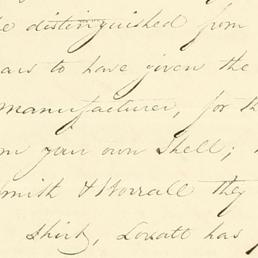 distinguished from
to have given the
manufacturer, for th
your own Shell;
mith & Worrall they
Shirt, Loxatt has